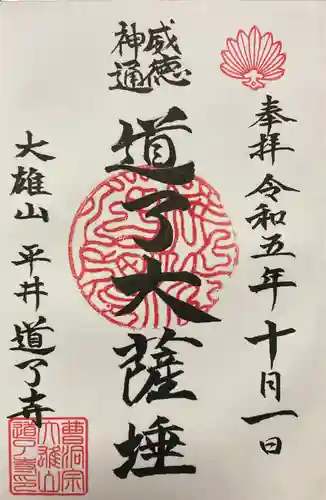 奉拝 令和五年十月一日
威徳
神通
道了大薩埵
大雄山 平井道了寺
曹洞宗
大雄山